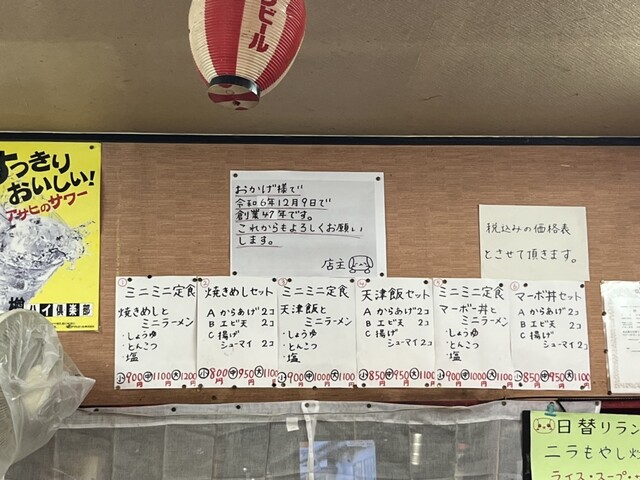 ビール
すっきり
おいしい!
アサヒのサワー
樽ハイ倶楽部
おかげ様で
令和6年12月9日で
創業47年です。
これからもよろしくお願い
します。
店主
税込みの価格表
とさせて頂きます。
① ミニミニ定食
焼きめしと
ミニラーメン
・しょうゆ
・とんこつ
・塩
小900円 中1100円 大1200円
② 焼きめしセット
A からあげ 2コ
B エビ天 2コ
C 揚げ
シューマイ 2コ
小800円 中950円 大1100円
③ ミニミニ定食
天津飯と
ミニラーメン
・しょうゆ
・とんこつ
・塩
小900円 中1000円 大1100円
④ 天津飯セット
A からあげ 2コ
B エビ天 2コ
C 揚げ
シューマイ 2コ
小850円 中950円 大1100円
⑤ ミニミニ定食
マーボー丼と
ミニラーメン
・しょうゆ
・とんこつ
・塩
小900円 中1000円 大1100円
⑥ マーボ丼セット
A からあげ 2コ
B エビ天 2コ
C 揚げ
シューマイ 2コ
小850円 中950円 大1100円
日替りラン
ニラもやし炒
ライス・スープ・